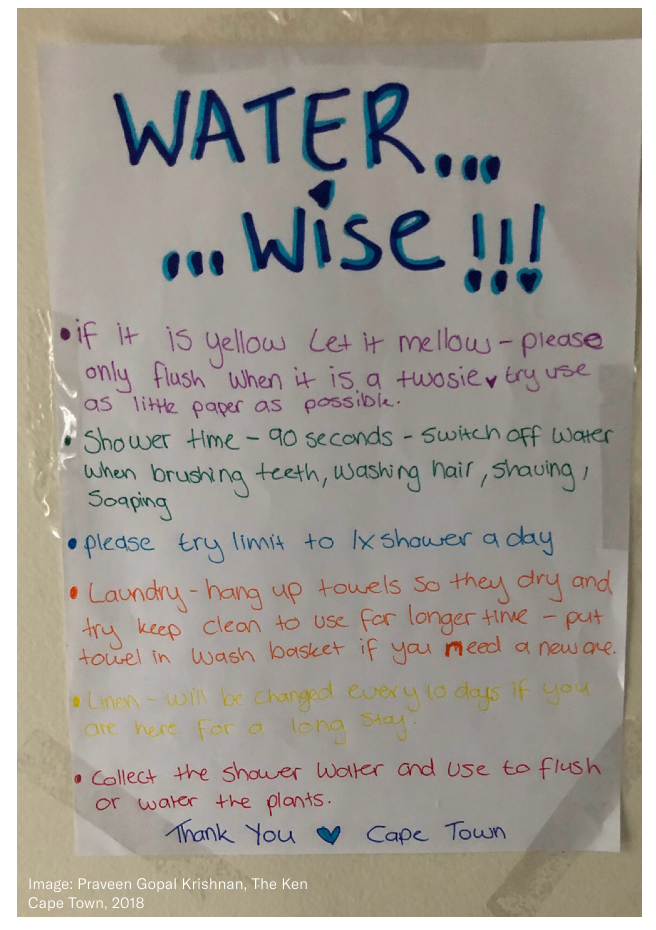 WATER...
...Wise!!!
• if it is yellow Let it mellow - please
only flush when it is a twosie ♥ try use
as little paper as possible.
• Shower time - 90 seconds - switch off water
when brushing teeth, washing hair, shaving,
Soaping
• please try limit to 1x shower a day
• Laundry - hang up towels so they dry and
try keep clean to use for longer time - put
towel in wash basket if you need a new one.
• Linen - will be changed every 10 days if you
are here for a long stay.
• Collect the shower water and use to flush
or water the plants.
Thank You ♥ Cape Town
Image: Praveen Gopal Krishnan, The Ken
Cape Town, 2018